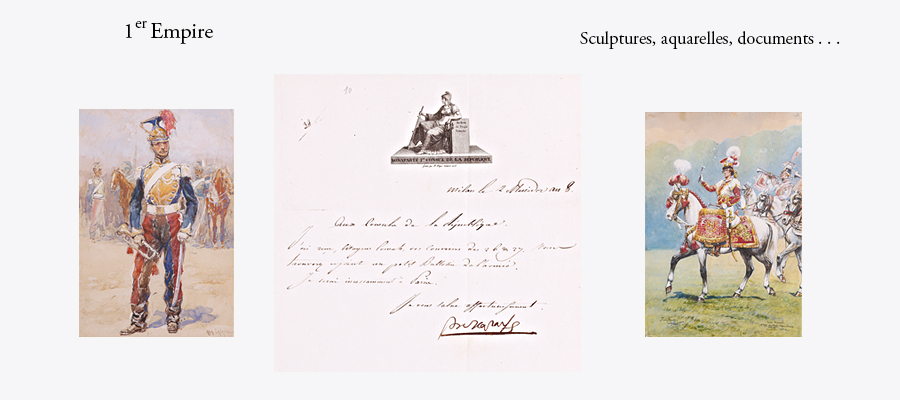 1er Empire
Sculptures, aquarelles, documents . . .
BONAPARTE 1er CONSUL DE LA REPUBLIQUE
Milan le 2 Messidor an 8.
Aux Consuls de la République.
J'ai reçu, Citoyens Consuls, vos Couriers du 26 & 27. Vous
trouverez cyjoint un petit Bulletin de l'armée.
Je serai incessamment à Paris.
Je vous salue affectueusement.
Bonaparte